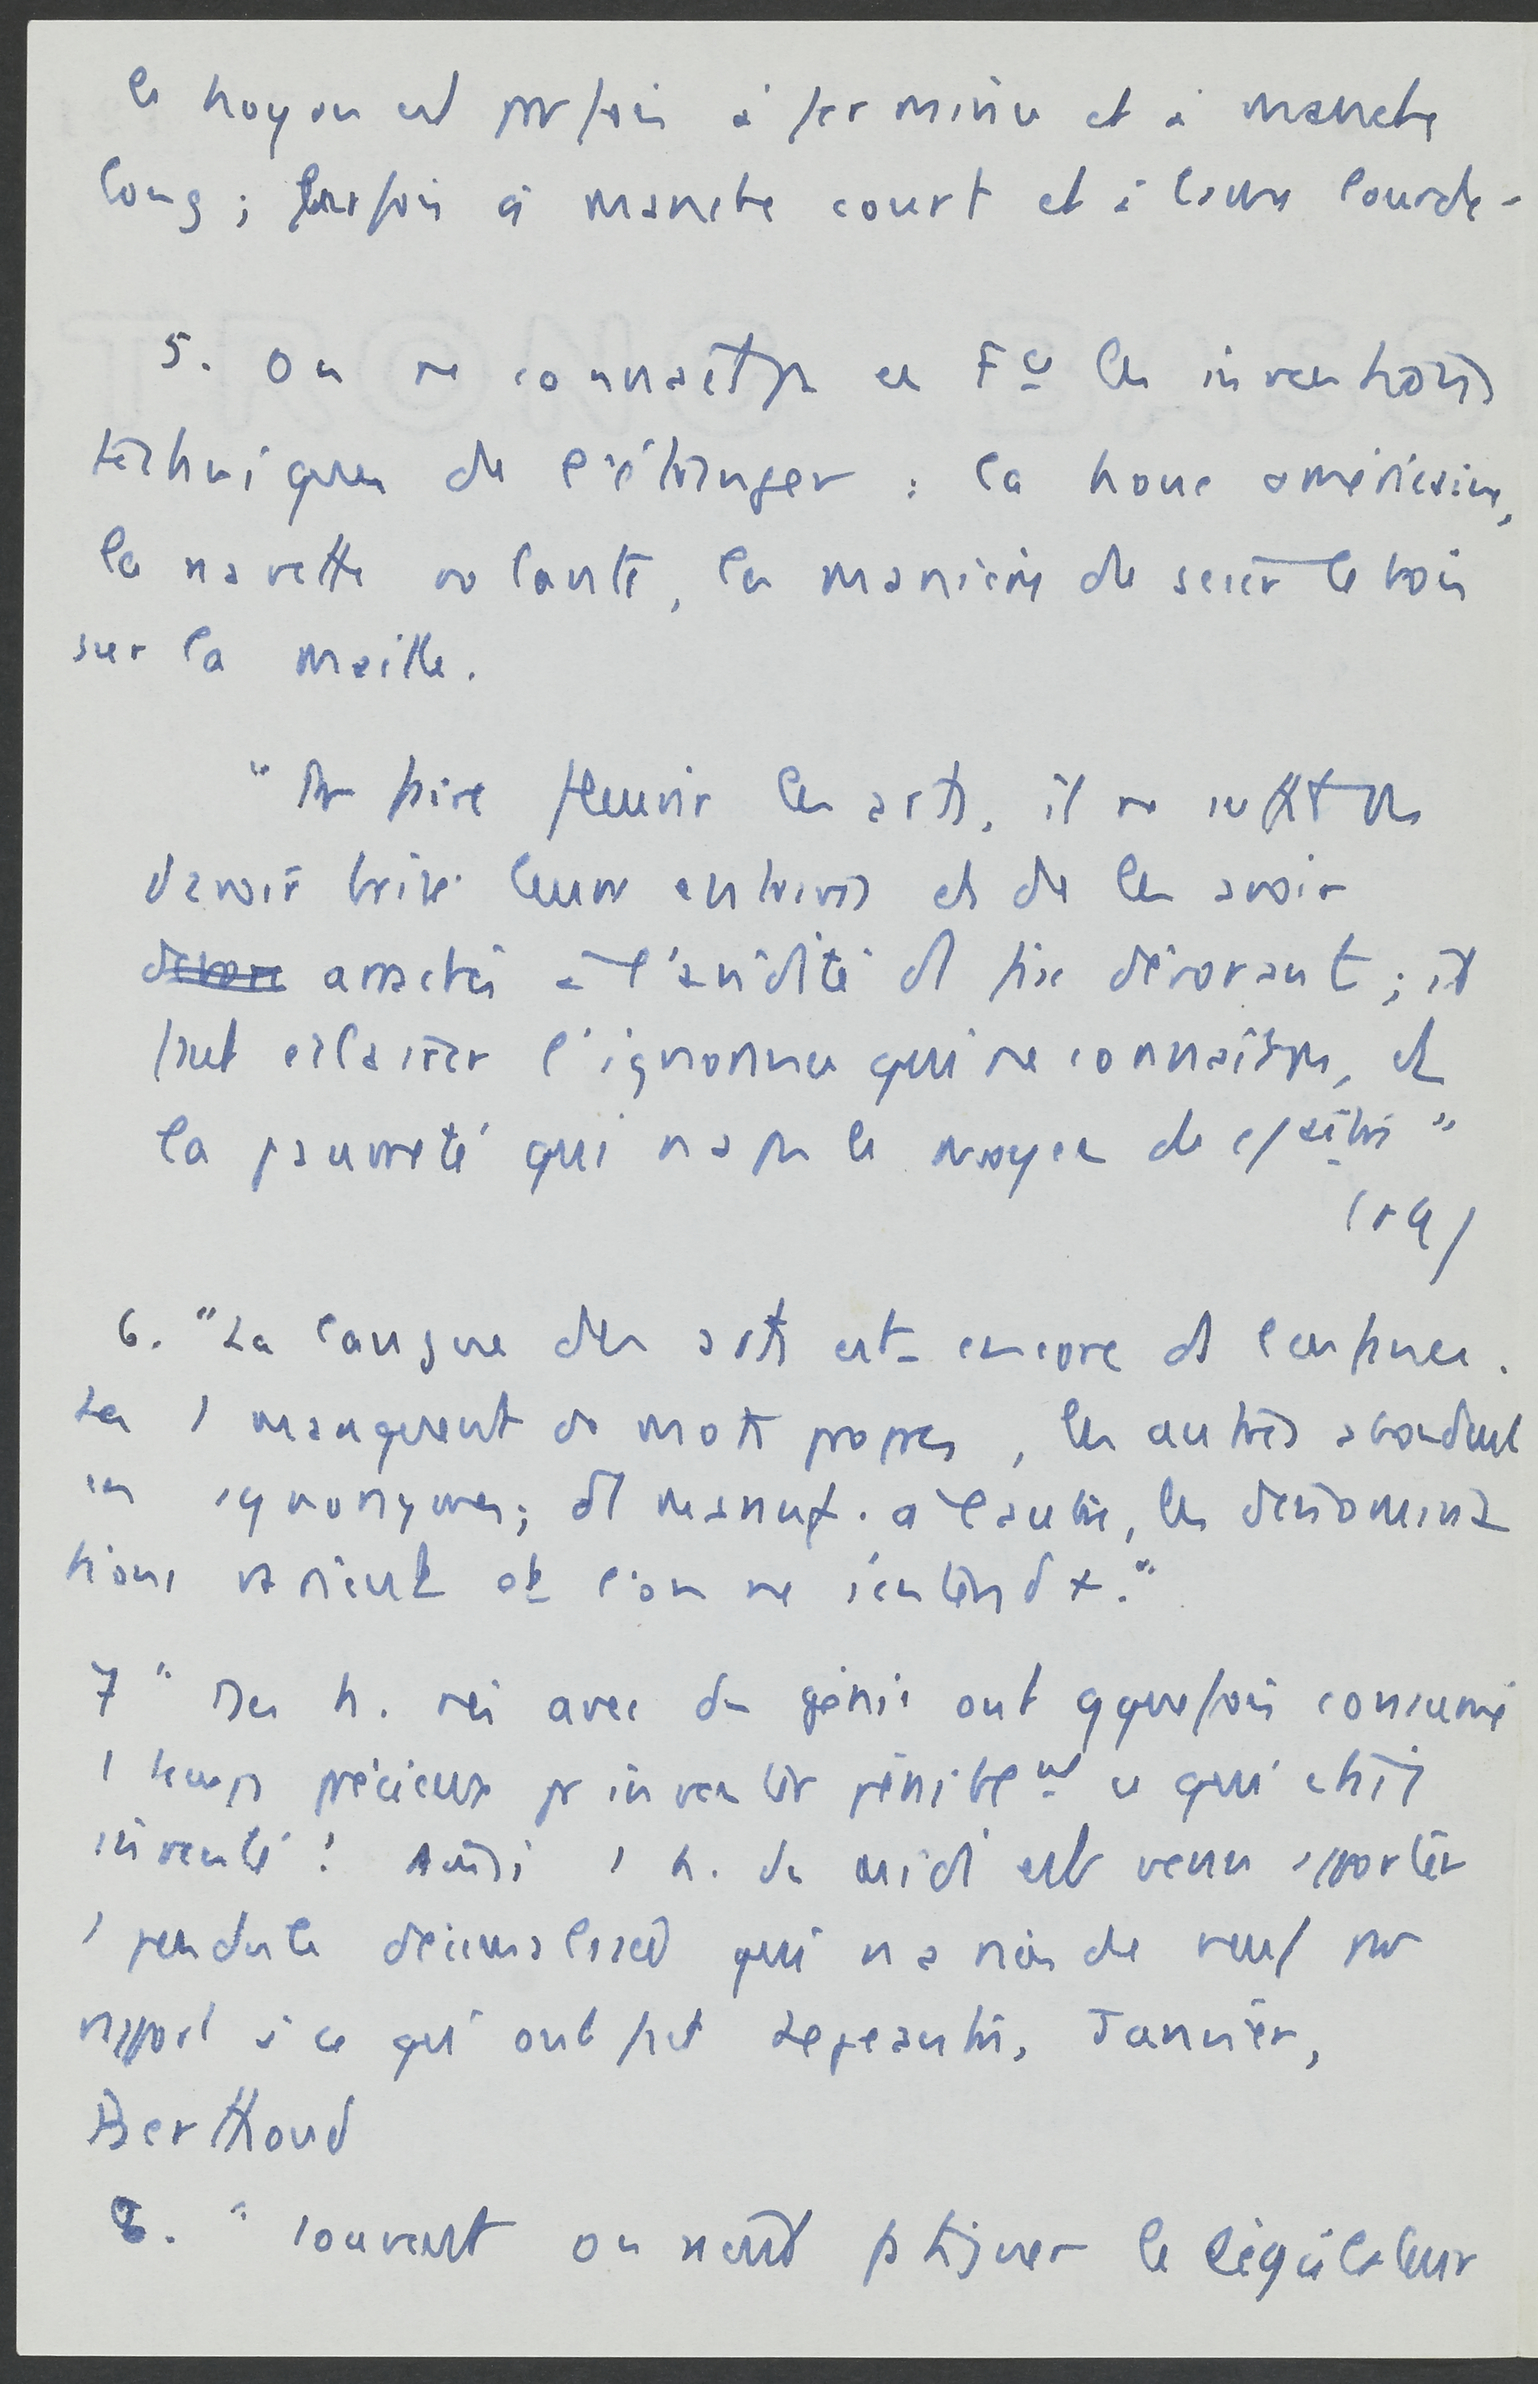 le hoyau est parfois à fer mince et à manche
long ; parfois à manche court et à lame lourde -
5. On ne connaît pas en Fce les inventions
techniques de l'étranger : la houe américaine,
la navette volante, la manière de scier le bois
sur la maille.
" Pr faire fleurir les arts, il ne suffit pas
d'avoir brisé leurs entraves et de les avoir
arrachés à l'avidité du fisc dévorant ; il
faut éclairer l'ignorance qui ne connaît pas, et
la pauvreté qui n'a pas le moyen de
6. "La langue des arts est encore ds l'enfance.
Les 1 manquent de mots propres, les autres abondent
en synonymes ; d'1 manuf. à l'autre, les dénomina
tions varient et l'on ne s'entend +."
7 " Des h. nés avec du génie ont qquefois consumé
1 temps précieux pr inventer péniblemt ce qui était
inventé ! Ainsi 1 h. du midi est venu apporter
1 pendule qui n'a rien de neuf par
rapport à ce qu'ont fait Lepeautre, Janvier,
Berthoud
8. " souvent on vient fatiguer le législateur